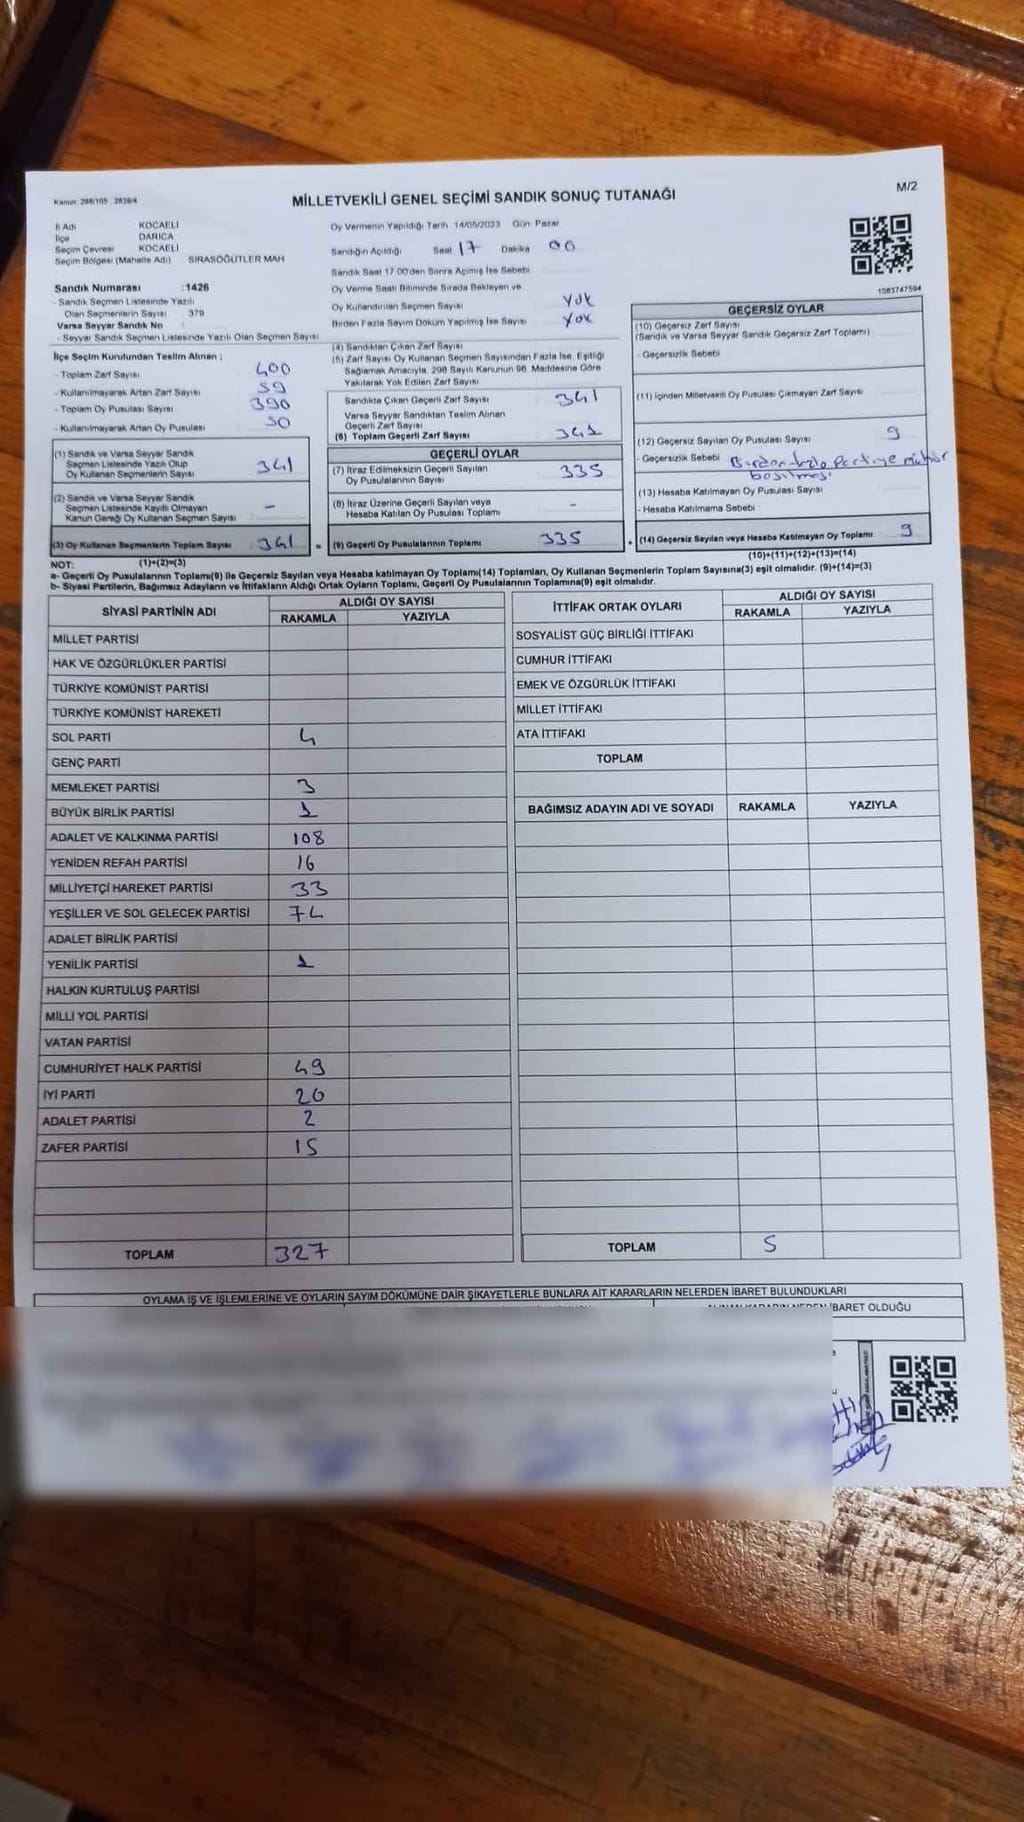 Kanun: 298/105 , 2839/4
MİLLETVEKİLİ GENEL SEÇİMİ SANDIK SONUÇ TUTANAĞI
M/2
İl Adı KOCAELİ
İlçe DARICA
Seçim Çevresi KOCAELİ
Seçim Bölgesi (Mahalle Adı) SIRASÖĞÜTLER MAH
Sandık Numarası :1426
- Sandık Seçmen Listesinde Yazılı
Olan Seçmenlerin Sayısı : 379
Varsa Seyyar Sandık No :
- Seyyar Sandık Seçmen Listesinde Yazılı Olan Seçmen Sayısı :
İlçe Seçim Kurulundan Teslim Alınan ;
- Toplam Zarf Sayısı : 400
- Kullanılmayarak Artan Zarf Sayısı : 59
- Toplam Oy Pusulası Sayısı : 390
- Kullanılmayarak Artan Oy Pusulası : 50
(1) Sandık ve Varsa Seyyar Sandık
Seçmen Listesinde Yazılı Olup
Oy Kullanan Seçmenlerin Sayısı : 341
(2) Sandık ve Varsa Seyyar Sandık
Seçmen Listesinde Kayıtlı Olmayan
Kanun Gereği Oy Kullanan Seçmen Sayısı : -
(3) Oy Kullanan Seçmenlerin Toplam Sayısı : 341
(1)+(2)=(3)
Oy Vermenin Yapıldığı Tarih 14/05/2023 Gün Pazar
Sandığın Açıldığı Saat 17 Dakika 00
Sandık Saat 17:00'den Sonra Açılmış İse Sebebi
Oy Verme Saati Bitiminde Sırada Bekleyen ve
Oy Kullandırılan Seçmen Sayısı : Yok
Birden Fazla Sayım Döküm Yapılmış İse Sayısı : Yok
(4) Sandıktan Çıkan Zarf Sayısı :
(5) Zarf Sayısı Oy Kullanan Seçmen Sayısından Fazla İse, Eşitliği
Sağlamak Amacıyla, 298 Sayılı Kanunun 98. Maddesine Göre
Yakılarak Yok Edilen Zarf Sayısı :
Sandıkta Çıkan Geçerli Zarf Sayısı : 341
Varsa Seyyar Sandıktan Teslim Alınan
Geçerli Zarf Sayısı :
(6) Toplam Geçerli Zarf Sayısı : 341
GEÇERLİ OYLAR
(7) İtiraz Edilmeksizin Geçerli Sayılan
Oy Pusulalarının Sayısı : 335
(8) İtiraz Üzerine Geçerli Sayılan veya
Hesaba Katılan Oy Pusulası Toplamı : -
= (9) Geçerli Oy Pusulalarının Toplamı : 335
1083747594
GEÇERSİZ OYLAR
(10) Geçersiz Zarf Sayısı :
(Sandık ve Varsa Seyyar Sandık Geçersiz Zarf Toplamı)
- Geçersizlik Sebebi :
(11) İçinden Milletvekili Oy Pusulası Çıkmayan Zarf Sayısı :
(12) Geçersiz Sayılan Oy Pusulası Sayısı : 9
- Geçersizlik Sebebi : Birden fazla partiye mühür
basılması
(13) Hesaba Katılmayan Oy Pusulası Sayısı :
- Hesaba Katılmama Sebebi :
+ (14) Geçersiz Sayılan veya Hesaba Katılmayan Oy Toplamı : 9
(10)+(11)+(12)+(13)=(14)
NOT:
a- Geçerli Oy Pusulalarının Toplamı(9) ile Geçersiz Sayılan veya Hesaba katılmayan Oy Toplamı(14) Toplamları, Oy Kullanan Seçmenlerin Toplam Sayısına(3) eşit olmalıdır. (9)+(14)=(3)
b- Siyasi Partilerin, Bağımsız Adayların ve İttifakların Aldığı Ortak Oyların Toplamı, Geçerli Oy Pusulalarının Toplamına(9) eşit olmalıdır.
SİYASİ PARTİNİN ADI ALDIĞI OY SAYISI
RAKAMLA YAZIYLA
MİLLET PARTİSİ
HAK VE ÖZGÜRLÜKLER PARTİSİ
TÜRKİYE KOMÜNİST PARTİSİ
TÜRKİYE KOMÜNİST HAREKETİ
SOL PARTİ 4
GENÇ PARTİ
MEMLEKET PARTİSİ 3
BÜYÜK BİRLİK PARTİSİ 1
ADALET VE KALKINMA PARTİSİ 108
YENİDEN REFAH PARTİSİ 16
MİLLİYETÇİ HAREKET PARTİSİ 33
YEŞİLLER VE SOL GELECEK PARTİSİ 74
ADALET BİRLİK PARTİSİ
YENİLİK PARTİSİ 1
HALKIN KURTULUŞ PARTİSİ
MİLLİ YOL PARTİSİ
VATAN PARTİSİ
CUMHURİYET HALK PARTİSİ 49
İYİ PARTİ 20
ADALET PARTİSİ 2
ZAFER PARTİSİ 15
TOPLAM 327
İTTİFAK ORTAK OYLARI ALDIĞI OY SAYISI
RAKAMLA YAZIYLA
SOSYALİST GÜÇ BİRLİĞİ İTTİFAKI
CUMHUR İTTİFAKI
EMEK VE ÖZGÜRLÜK İTTİFAKI
MİLLET İTTİFAKI
ATA İTTİFAKI
TOPLAM
BAĞIMSIZ ADAYIN ADI VE SOYADI RAKAMLA YAZIYLA
TOPLAM 5
OYLAMA İŞ VE İŞLEMLERİNE VE OYLARIN SAYIM DÖKÜMÜNE DAİR ŞİKAYETLERLE BUNLARA AİT KARARLARIN NELERDEN İBARET BULUNDUKLARI
İBARET OLDUĞU